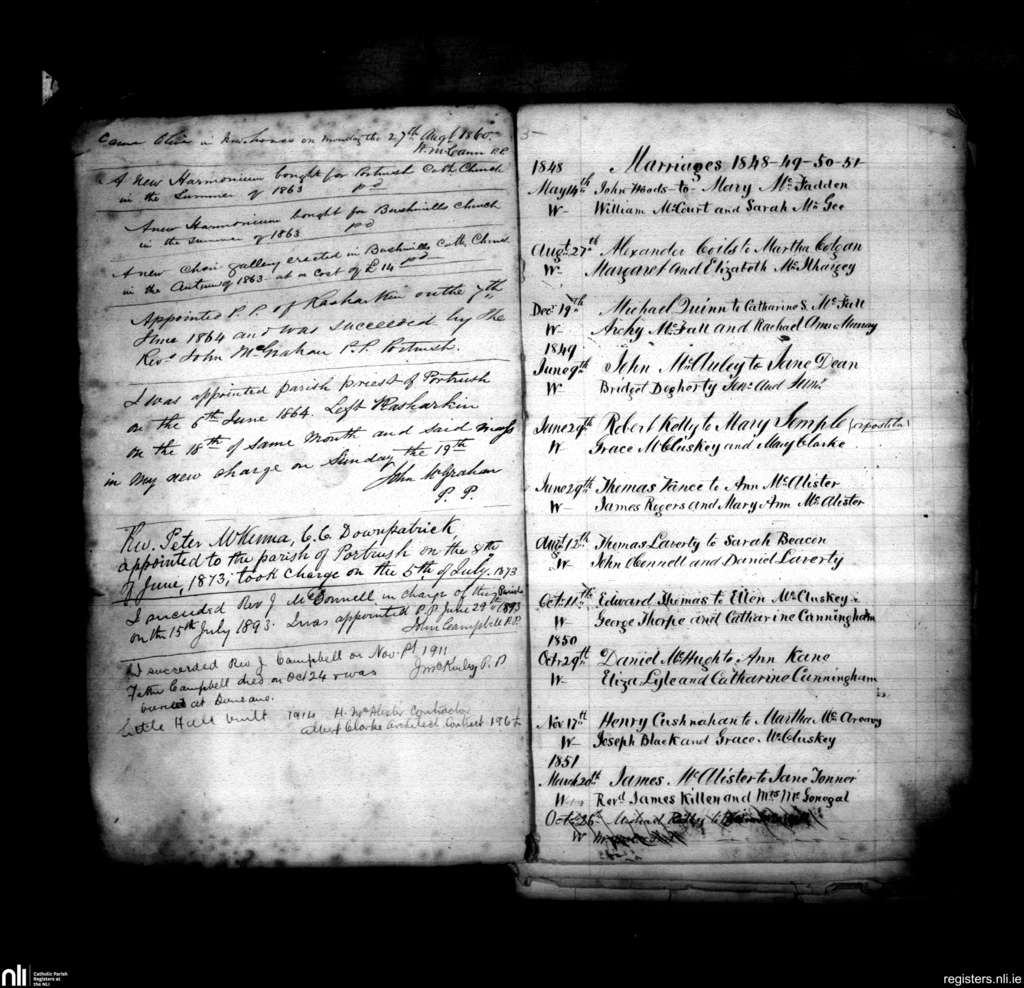 Came in on Monday the 27th Augt 1860
Wm McCann P.P.
A New Harmonium bought for Portrush Cath Church
in the Summer of 1863 pd
A new Harmonium bought for Bushmills Church
in the summer of 1863 pd
A new Choir gallery erected in Bushmills Cath. Church
in the Autumn of 1863 at a cost of £14 pd
Appointed P.P. of Rasharkin on the 7th
June 1864 and was succeeded by the
Revd John McGrahan P.P. Portrush.
I was appointed parish priest of Portrush
on the 6th June 1864. Left Rasharkin
on the 18th of same month and said mass
in my new charge on Sunday the 19th
John McGrahan
P. P.
Rev. Peter McKenna, C.C. Downpatrick,
appointed to the parish of Portrush on the 8th
of June, 1873; took charge on the 5th of July. 1873
I succeeded Rev J. McDonnell in charge of this Parish
on the 15th July 1893. I was appointed P.P. June 29th 1893
John Campbell P.P.
I succeeded Rev J. Campbell on Nov. 1911
Father Campbell died on Oct 24 & was
buried at
Little Hall built 1914 H. McAlister Contractor
Albert Clarke architect Contract
5
1848 Marriages 1848-49-50-51
May 14th John Woods to Mary McFadden
W- William McCourt and Sarah McGee
Augt 27th Alexander Coils to Martha Colgan
W- Margaret and Elizabeth McIlhargey
Decr 19th Michael Quinn to Catharine S. McFall
W- Archy McFall and Rachael Ann Murray
1849
June 9th John McAuley to Jane Dean
W- Bridget Dogherty Senr and Junr
June 29th Robert Kelly to Mary Temple
W- Grace McCluskey and Mary Clarke
June 29th Thomas Vance to Ann McAlister
W- James Rogers and Mary Ann McAlister
Augt 12th Thomas Laverty to Sarah Beacon
W- John Connell and Daniel Laverty
Octr 11th Edward Thomas to Ellen McCluskey
W- George Thorpe and Catharine Cunningham
1850
Octr 29th Daniel McHugh to Ann Kane
W- Eliza Lyle and Catharine Cunningham
Nov 17th Henry Cushnahan to Martha McAreavy
W- Joseph Black and Grace McCluskey
1851
March 20th James McAlister to Jane Tonner
W- Revd James Killen and Mrs McGonegal
Octr 26th Michael
W
nli Catholic Parish
Registers at
the NLI
registers.nli.ie